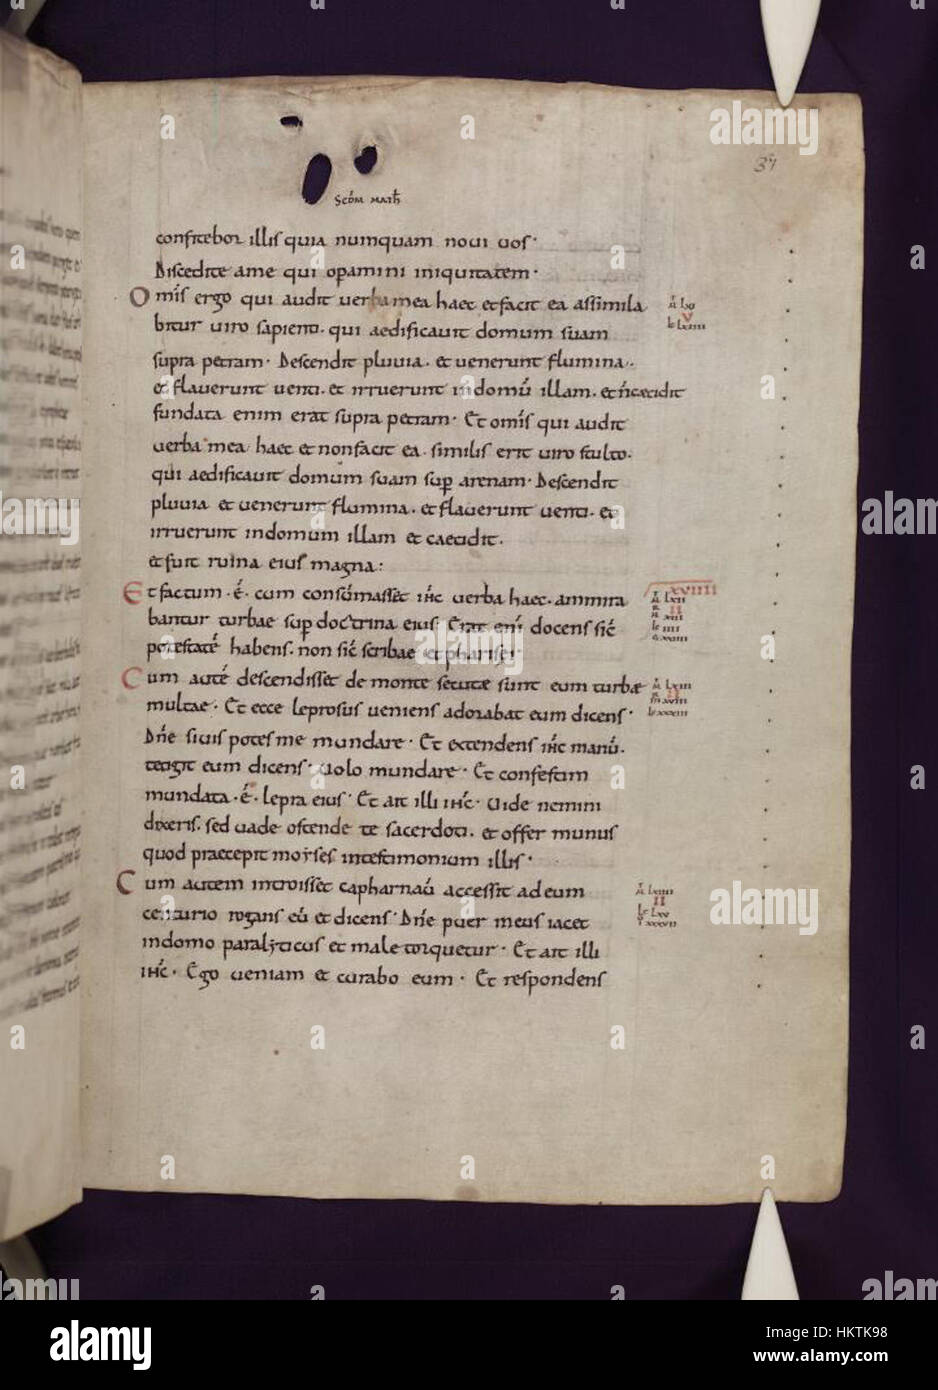 37
SCDM MATH
confitebor illis quia numquam novi vos·
Discedite ame qui opamini iniquitatem·
Omīs ergo qui audit verba mea haec etfacit ea assimila
bitur viro sapienti· qui aedificavit domum suam
supra petram· Descendit pluvia· et venerunt flumina·
et flaverunt venti· et irruerunt indomū illam· et n̄ caecidit
fundata enim erat supra petram· Et omīs qui audit
verba mea haec et nonfacit ea· similis erit viro stulto·
qui aedificavit domum suam sup arenam· Descendit
pluvia et venerunt flumina· et flaverunt venti· et
irruerunt indomum illam et caecidit·
et fuit ruina eius magna:
Et factum·ē· cum consūmasset ihc̄ verba haec· ammira
bantur turbae sup doctrina eius· Erat enī docens sic̄
potestatē habens· non sic̄ scribae et pharisei
Cum autē descendisset de monte secutae sunt eum turbae
multae· Et ecce leprosus veniens adorabat eum dicens·
Dn̄e si vis potes me mundare· Et extendens ihc̄ manū·
tetigit eum dicens· volo mundare· Et confestim
mundata·ē· lepra eius· Et ait illi ihc̄· Vide nemini
dixeris· sed vade ostende te sacerdoti· et offer munus
quod praecepit moyses intestimonium illis·
Cum autem introisset capharnaū accessit ad eum
centurio rogans eū et dicens· Dn̄e puer meus iacet
indomo paralyticus et male torquetur· Et ait illi
ihc̄· Ego veniam et curabo eum· Et respondens
lxi
V
XVIIII
lxii
II
xiii
lxiii
II
lxiiii
II
lxv
alamy
Image ID: HKTK98
www.alamy.com